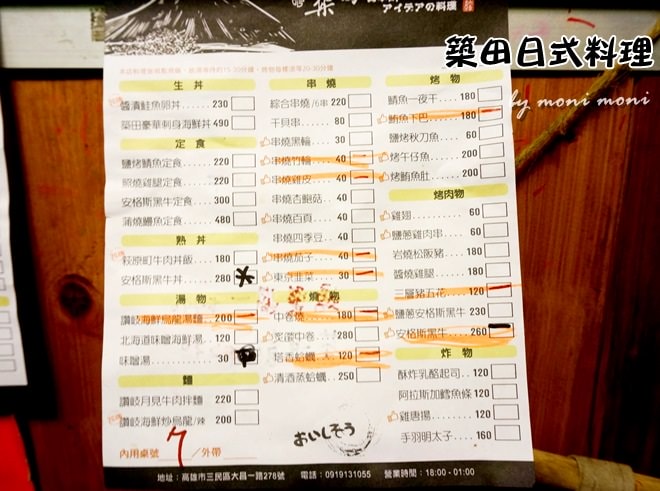 築
アイデアの料理
築田日式料理
by moni moni
生丼
醬漬鮭魚卵丼.. 230
築田豪華刺身海鮮丼 490
定食
鹽烤鯖魚定食.... 220
照燒雞腿定食.... 220
安格斯黑牛定食.. 300
蒲燒鰻魚定食.... 480
熟丼
萩原町牛肉丼飯.. 180
安格斯黑牛丼.... 280
湯物
讚岐海鮮烏龍湯麵.. 200
北海道味噌海鮮湯. 120
味噌湯.......... 30
麵
讚岐月見牛肉拌麵 220
讚岐海鮮炒烏龍/辣 200
內用桌號 7 /外帶
串燒
綜合串燒/6串 220
干貝串...... 80
串燒黑輪.... 30
串燒竹輪.... 40
串燒雞皮.... 40
串燒杏鮑菇.. 40
串燒百頁.... 40
串燒四季豆.. 40
串燒茄子.... 40
東京韭菜.... 30
燒物
中卷燒...... 180
280
塔香蛤蠣 120
清酒蒸蛤蠣.. 250
おいしそう
烤物
鯖魚一夜干... 180
鮪魚下巴..... 180
鹽烤秋刀魚... 60
烤午仔魚..... 200
烤鮪魚肚..... 200
烤肉物
雞翅......... 60
鹽蔥雞肉串... 60
岩燒松阪豬... 180
醬燒雞腿..... 180
三層豬五花... 120
鹽蔥安格斯黑牛 230
安格斯黑牛... 260
炸物
酥炸乳酪起司.. 120
阿拉斯加鱈魚條 120
雞唐揚....... 120
手羽明太子... 160
地址:高雄市三民區大昌一路278號 電話:0919131055 營業時間:18:00 - 01:00